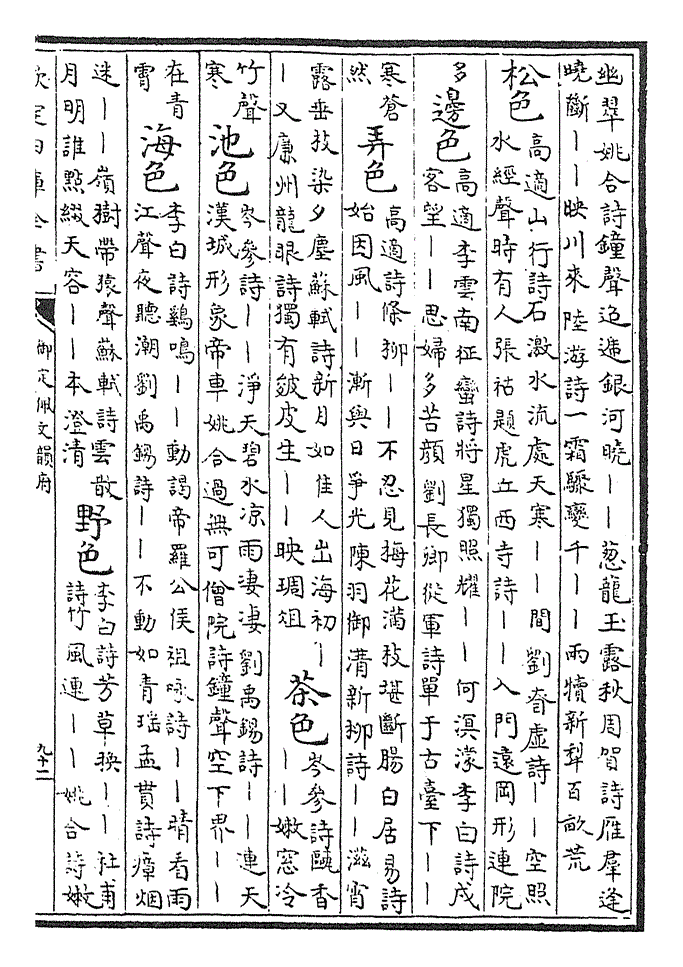 幽翠姚合詩鐘聲迢遞銀河曉丨丨葱蘢玉露秋周賀詩雁羣逢
曉斷丨丨映川來陸游詩一霜驟變千丨丨兩犢新犁百畝荒
松色
高適山行詩石激水流處天寒丨丨間劉眘虛詩丨丨空照
水經聲時有人張祜題虎丘西寺詩丨丨入門遠岡形連院
多
邊色
高適李雲南征蠻詩將星獨照耀丨丨何溟濛李白詩戍
客望丨丨思婦多苦顏劉長卿從軍詩單于古臺下丨丨
寒蒼
然
弄色
高適詩條柳丨丨不忍見梅花滿枝堪斷腸白居易詩
始因風丨丨漸與日爭光陳羽御溝新柳詩丨丨滋宵
露垂枝染夕塵蘇軾詩新月如佳人出海初丨
丨又廉州龍眼詩獨有皴皮生丨丨映琱俎
茶色
岑參詩甌香
丨丨嫩窓冷
竹聲
寒
池色
岑參詩丨丨淨天碧水凉雨凄凄劉禹錫詩丨丨連天
漢城形象帝車姚合過無可僧院詩鐘聲空下界丨丨
在青
霄
海色
李白詩鷄鳴丨丨動謁帝羅公侯祖咏詩丨丨晴看雨
江聲夜聽潮劉禹錫詩丨丨不動如青瑶孟貫詩瘴烟
迷丨丨嶺樹帶猿聲蘇軾詩雲散
月明誰點綴天容丨丨本澄清
野色
李白詩芳草換丨丨杜甫
詩竹風連丨丨姚合詩嫩
欽定四庫全書
御定佩文韻府
九十二